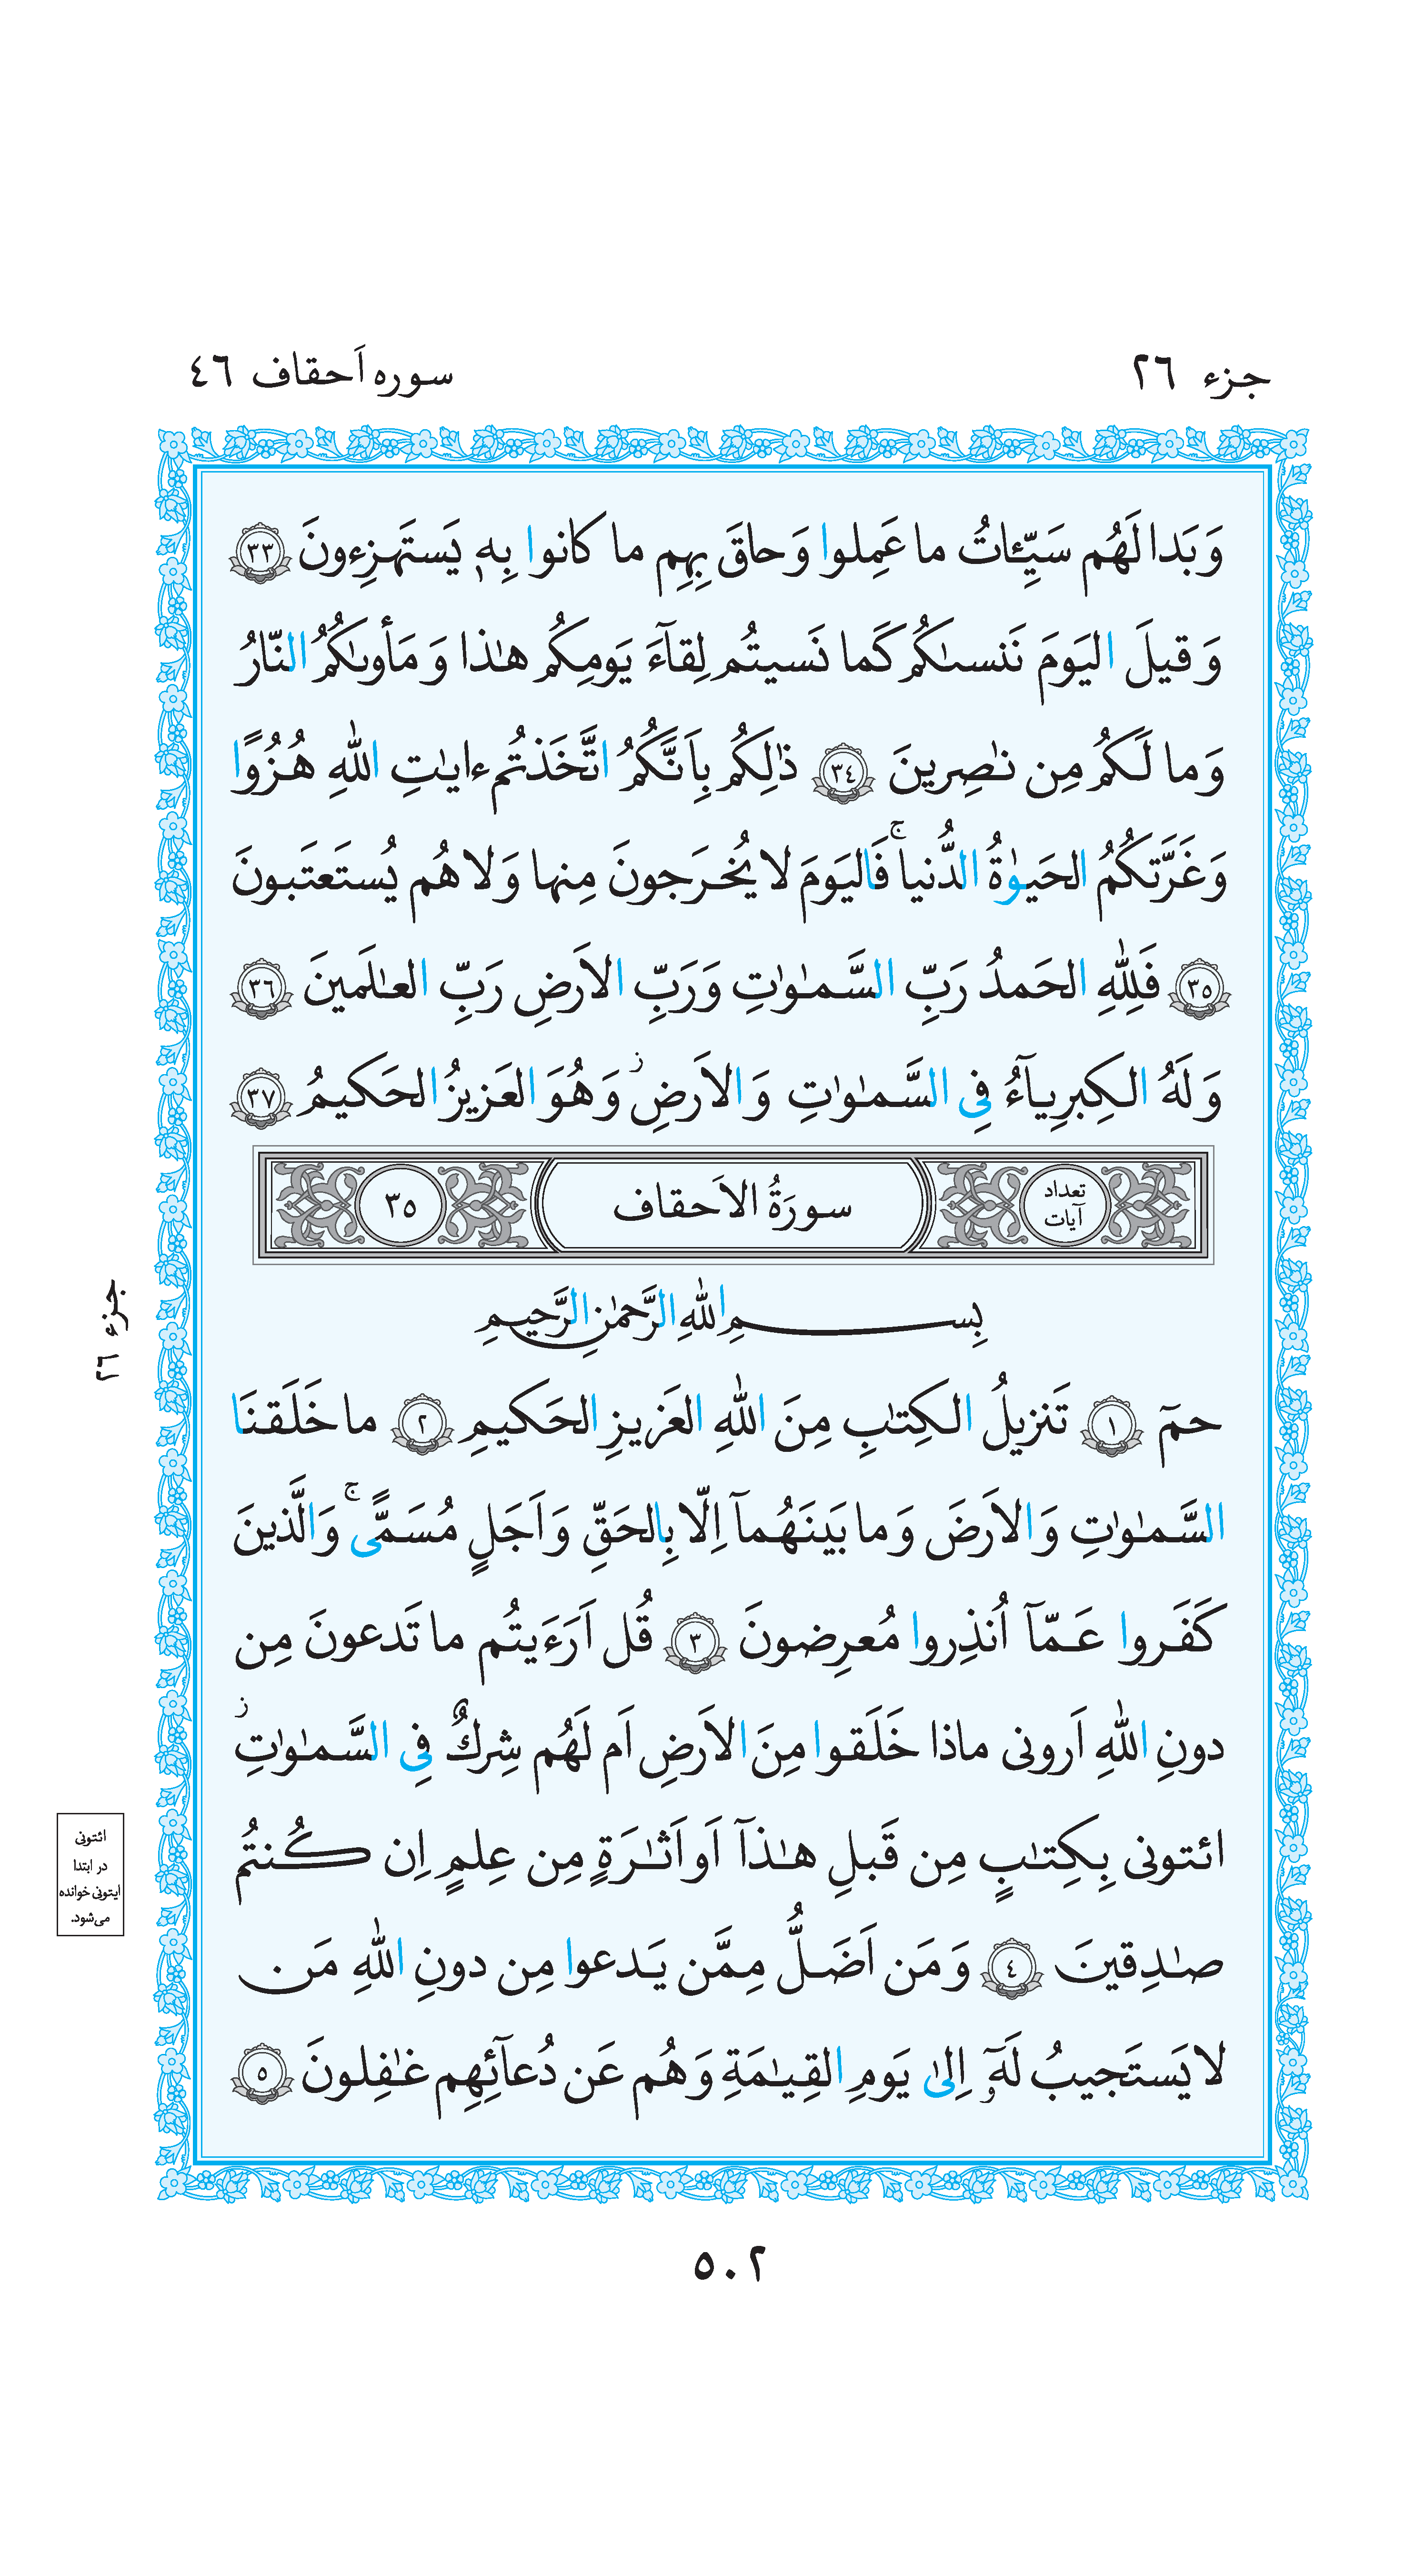 جزء ٢٦
سوره اَحقاف ٤٦
وَ بَدا لَهُم سَيِّـٔاتُ ما عَمِلوا وَ حاقَ بِهِم ما كانوا بِهٖ يَستَهزِءونَ ٣٣
وَ قيلَ اليَومَ نَنسىٰكُم كَما نَسيتُم لِقآءَ يَومِكُم هٰذا وَ مَأوىٰكُمُ النّارُ
وَ ما لَكُم مِن نٰصِرينَ ٣٤ ذٰلِكُم بِاَنَّكُمُ اتَّخَذتُم ءايٰتِ اللهِ هُزُوًا
وَ غَرَّتكُمُ الحَيوٰةُ الدُّنيا ۚ فَاليَومَ لا يُخرَجونَ مِنها وَ لا هُم يُستَعتَبونَ
٣٥ فَلِلّٰهِ الحَمدُ رَبِّ السَّمٰوٰتِ وَ رَبِّ الاَرضِ رَبِّ العٰلَمينَ ٣٦
وَ لَهُ الكِبرِيآءُ فِى السَّمٰوٰتِ وَ الاَرضِ ز وَ هُوَ العَزيزُ الحَكيمُ ٣٧
تعداد آيات
سورَةُ الاَحقاف
٣٥
بِسمِ اللهِ الرَّحمٰنِ الرَّحيمِ
حمٓ ١ تَنزيلُ الكِتٰبِ مِنَ اللهِ العَزيزِ الحَكيمِ ٢ ما خَلَقنَا
السَّمٰوٰتِ وَ الاَرضَ وَ ما بَينَهُمآ اِلّا بِالحَقِّ وَ اَجَلٍ مُسَمًّى ۚ وَ الَّذينَ
كَفَروا عَمّآ اُنذِروا مُعرِضونَ ٣ قُل اَرَءَيتُم ما تَدعونَ مِن
دونِ اللهِ اَرونى ماذا خَلَقوا مِنَ الاَرضِ اَم لَهُم شِركٌ فِى السَّمٰوٰتِ ز
ائتونى بِكِتٰبٍ مِن قَبلِ هٰذآ اَو اَثٰرَةٍ مِن عِلمٍ اِن كُنتُم
صٰدِقينَ ٤ وَ مَن اَضَلُّ مِمَّن يَدعوا مِن دونِ اللهِ مَن
لا يَستَجيبُ لَهٗٓ اِلىٰ يَومِ القِيٰمَةِ وَ هُم عَن دُعآئِهِم غٰفِلونَ ٥
جزء ٢٦
ائتونى
در ابتدا
ايتونى خوانده
مى‌شود.
٥٠٢